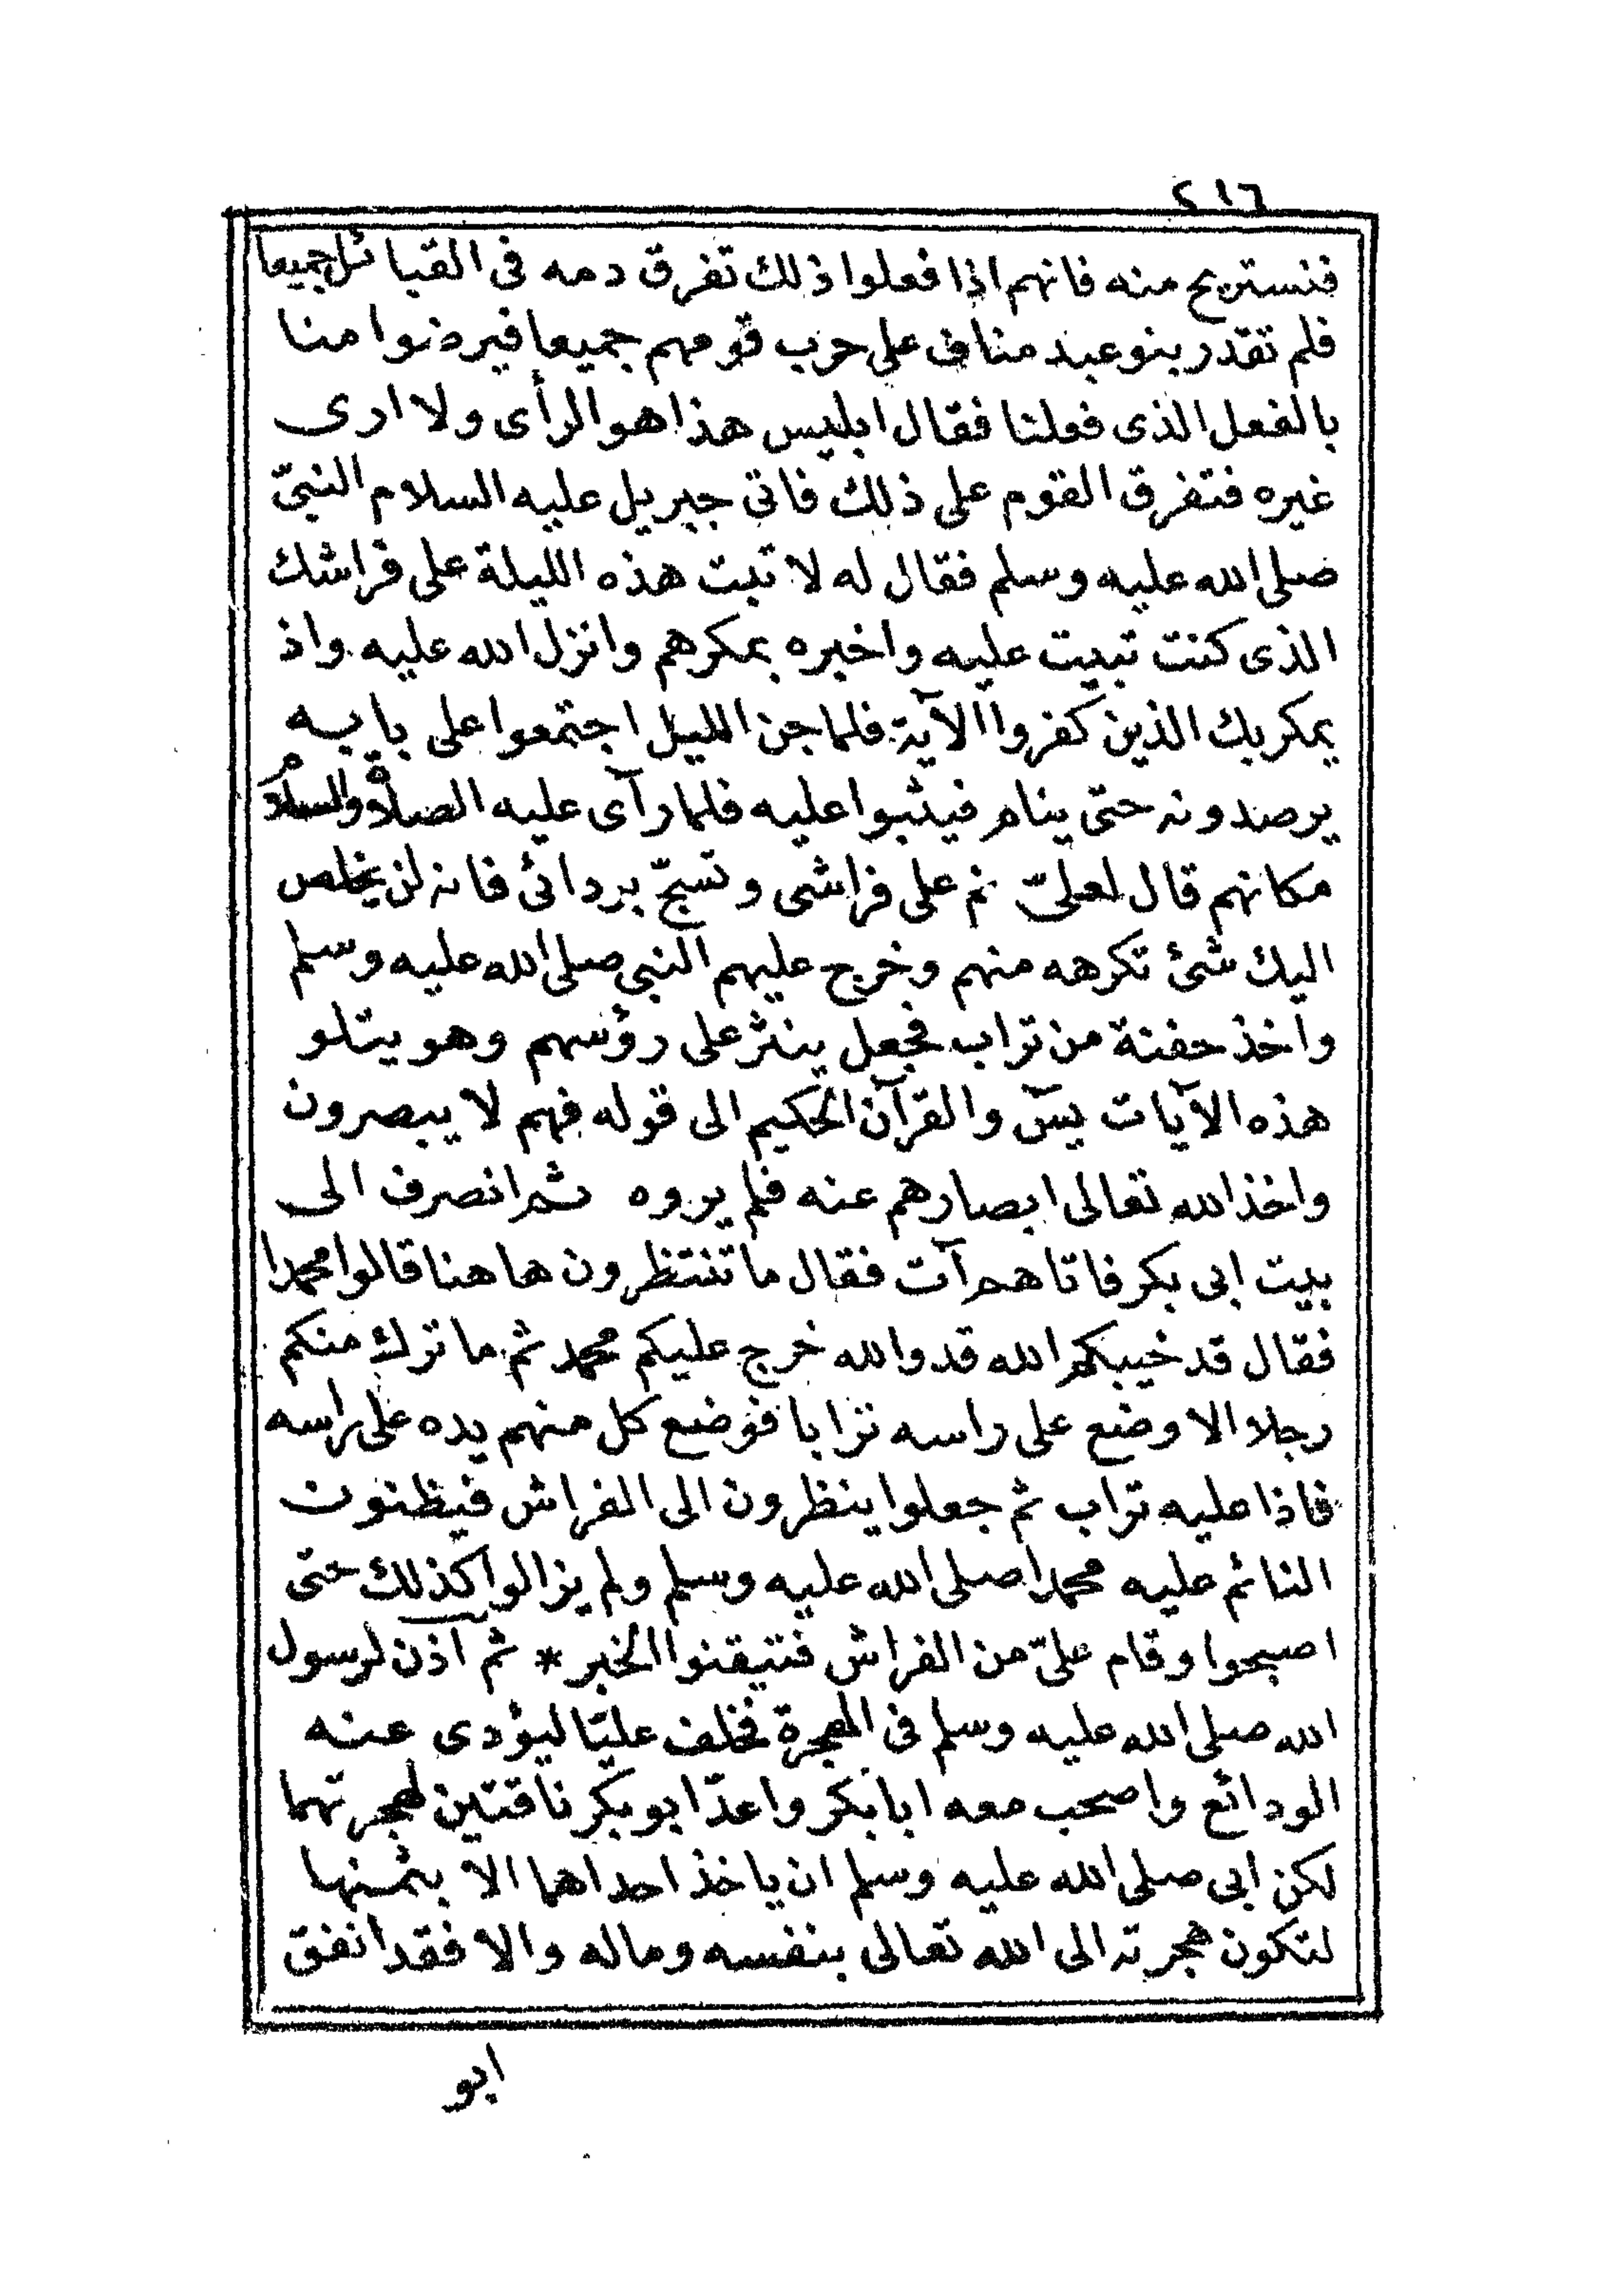 ٢١٦
فنستريح منه فانهم اذا فعلوا ذلك تفرق دمه فى القبائل جميعا
فلم تقدر بنو عبد مناف على حرب قومهم جميعا فيرضوا منا
بالفعل الذى فعلنا فقال ابليس هذا هو الرأى ولا ارى
غيره فتفرق القوم على ذلك فاتى جبريل عليه السلام النبىّ
صلى الله عليه وسلم فقال له لا تبت هذه الليلة على فراشك
الذى كنت تبيت عليه واخبره بمكرهم وانزل الله عليه واذ
يمكر بك الذين كفروا الآية فلما جن الليل اجتمعوا على بابه
يرصدونه حتى ينام فيثبوا عليه فلما رآى عليه الصلاة والسلام
مكانهم قال لعلىّ نم على فراشى وتسجّ بردائى فانه لن يخلص
اليك شئ تكرهه منهم وخرج عليهم النبى صلى الله عليه وسلم
واخذ حفنة من تراب فجعل ينثر على رؤسهم وهو يتلو
هذه الآيات يسٓ والقرآن الحكيم الى قوله فهم لا يبصرون
واخذ الله تعالى ابصارهم عنه فلم يروه ثم انصرف الى
بيت ابى بكر فاتاهم آت فقال ما تنتظرون هاهنا قالوا محمدا
فقال قد خيبكم الله قد والله خرج عليكم محمد ثم ما ترك منكم
رجلا الا وضع على راسه ترابا فوضع كل منهم يده على راسه
فاذا عليه تراب ثم جعلوا ينظرون الى الفراش فيظنون
النائم عليه محمدا صلى الله عليه وسلم ولم يزالوا كذلك حتى
اصبحوا وقام علىّ من الفراش فتيقنوا الخبر * ثم آذن لرسول
الله صلى الله عليه وسلم فى الهجرة فخلف عليّا ليؤدى عنه
الودائع واصحب معه ابا بكر واعدّ ابو بكر ناقتين لهجرتهما
لكن ابى صلى الله عليه وسلم ان ياخذ احداهما الا بثمنها
لتكون هجرته الى الله تعالى بنفسه وماله والا فقد انفق
ابو